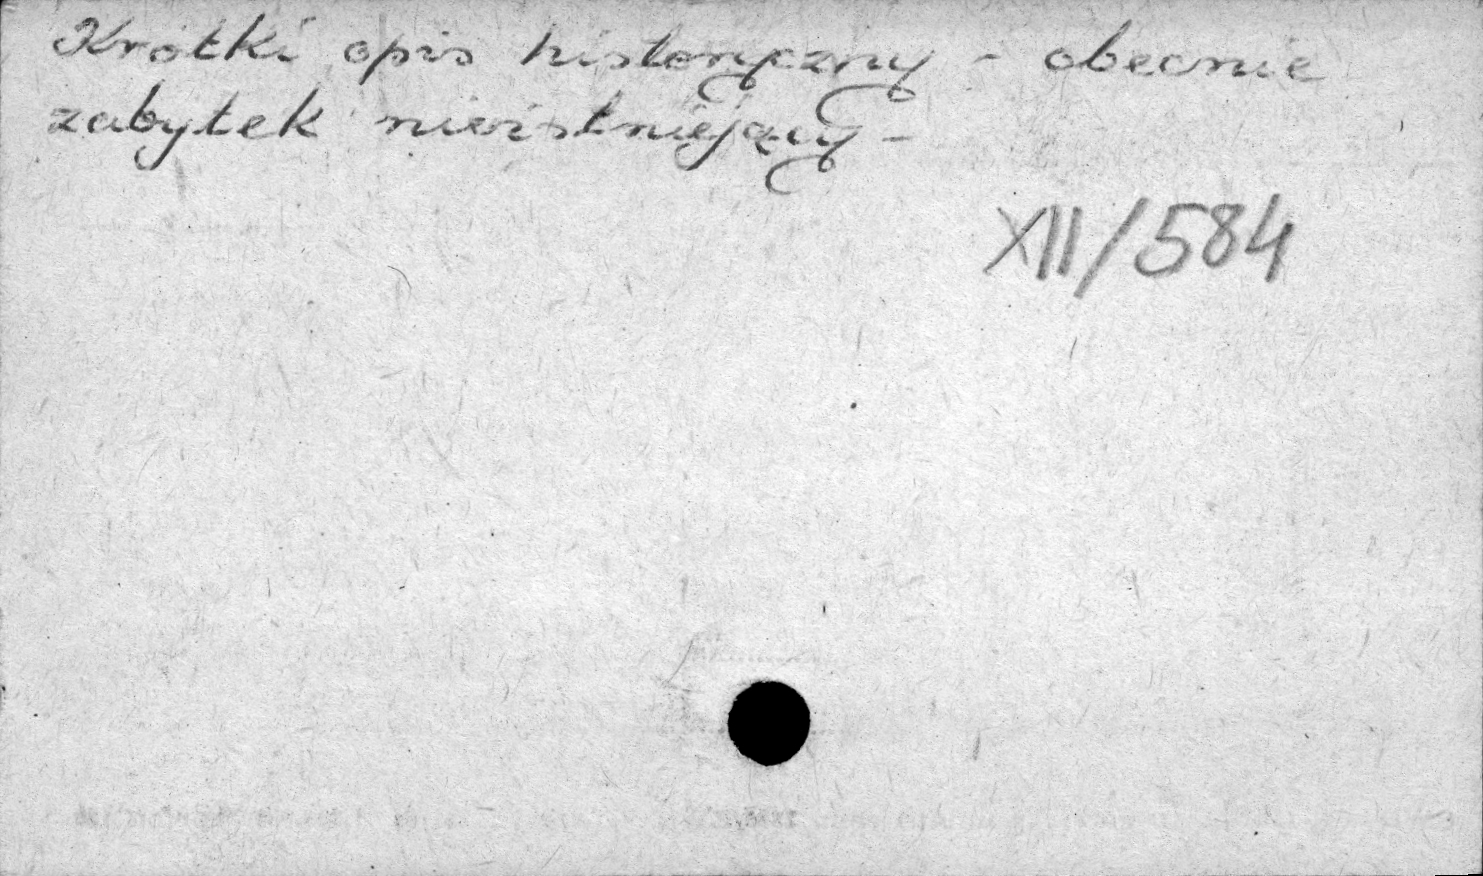 Krótki opis historyczny - obecnie
zabytek nieistniejący -
XII/584